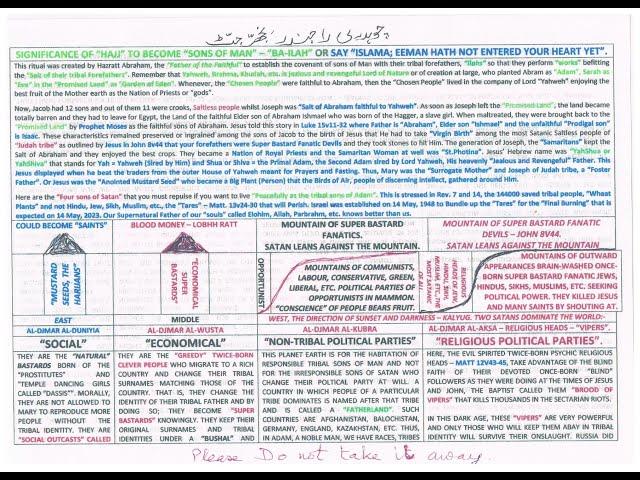 چوہدری راجندر نجھر جٹ
SIGNIFICANCE OF "HAJJ" TO BECOME "SONS OF MAN" – "BA-ILAH" OR SAY "ISLAMA; EEMAN HATH NOT ENTERED YOUR HEART YET".
This ritual was created by Hazratt Abraham, the "Father of the Faithful" to establish the covenant of sons of Man with their tribal forefathers, "Ilahs" so that they perform "works" befitting
the "Salt of their tribal forefathers". Remember that Yahweh, Brahma, Khudah, etc. is jealous and revengeful Lord of Nature or of creation at large, who planted Abram as "Adam", Sarah as
"Eve" in the "Promised Land" as "Garden of Eden". Whenever, the "Chosen People" were faithful to Abraham, then the "Chosen People" lived in the company of Lord "Yahweh" enjoying the
best fruit of the Mother earth as the Nation of Priests or "gods".
Now, Jacob had 12 sons and out of them 11 were crooks, Saltless people whilst Joseph was "Salt of Abraham faithful to Yahweh". As soon as Joseph left the "Promised-Land", the land became
totally barren and they had to leave for Egypt, the Land of the faithful Elder son of Abraham Ishmael who was born of the Haggar, a slave girl. When maltreated, they were brought back to the
"Promised Land" by Prophet Moses as the faithful sons of Abraham. Jesus told this story in Luke 15v11-32 where Father is "Abraham", Elder son "Ishmael" and the unfaithful "Prodigal son"
is Isaac. These characteristics remained preserved or ingrained among the sons of Jacob to the birth of Jesus that He had to take "Virgin Birth" among the most Satanic Saltless people of
"Judah tribe" as outlined by Jesus in Jn8v44 that your forefathers were Super Bastard Fanatic Devils and they took stones to hit Him. The generation of Joseph, the "Samaritans" kept the
Salt of Abraham and they enjoyed the best crops. They became a Nation of Royal Priests and the Samaritan Woman at well was St.Photina". Jesus' Hebrew name was "YahShua or
YahShiva" that stands for Yah = Yahweh (Sired by Him) and Shua or Shiva = the Primal Adam, the Second Adam sired by Lord Yahweh, His heavenly "Jealous and Revengeful" Father. This
Jesus displayed when he beat the traders from the outer House of Yahweh meant for Prayers and Fasting. Thus, Mary was the "Surrogate Mother" and Joseph of Judah tribe, a "Foster
Father". Or Jesus was the "Anointed Mustard Seed" who became a Big Plant (Person) that the Birds of Air, people of discerning intellect, gathered around Him.
Here are the "Four sons of Satan" that you must repulse if you want to live "Peacefully as the tribal sons of Adam". This is stressed in Rev. 7 and 14, the 144000 saved tribal people, "Wheat
Plants" and not Hindu, Jew, Sikh, Muslim, etc., the "Tares" – Matt. 13v24-30 that will Perish. Israel was established on 14 May, 1948 to Bundle up the "Tares" for the "Final Burning" that is
expected on 14 May, 2023. Our Supernatural Father of our "souls" called Elohim, Allah, Parbrahm, etc. knows better than us.
COULD BECOME "SAINTS"
BLOOD MONEY – LOBHH RATT
MOUNTAIN OF SUPER BASTARD
FANATICS.
SATAN LEANS AGAINST THE MOUNTAIN.
MOUNTAIN OF SUPER BASTARD FANATIC
DEVILS – JOHN 8V44.
SATAN LEANS AGAINST THE MOUNTAIN
"MUSTARD
SEEDS, THE
HARIJANS"
"ECONOMICAL
SUPER
BASTARDS"
OPPORTUNIST
MOUNTAINS OF COMMUNISTS,
LABOUR, CONSERVATIVE, GREEN,
LIBERAL, ETC. POLITICAL PARTIES OF
OPPORTUNISTS IN MAMMON.
"CONSCIENCE" OF PEOPLE BEARS FRUIT.
RELIGIOUS
HEADS OF JEW,
HINDU, SIKH,
MUSLIM, ETC., THE
"MOST SATANIC
OF ALL"
MOUNTAINS OF OUTWARD
APPEARANCES BRAIN-WASHED ONCE-
BORN SUPER BASTARD FANATIC JEWS,
HINDUS, SIKHS, MUSLIMS, ETC. SEEKING
POLITICAL POWER. THEY KILLED JESUS
AND MANY SAINTS BY SHOUTING AT.
EAST
MIDDLE
WEST, THE DIRECTION OF SUNSET AND DARKNESS – KALYUG. TWO SATANS DOMINATE THE WORLD:-
AL-DJMAR AL-DUNIYIA
AL-DJMAR AL-WUSTA
AL-DJMAR AL-KUBRA
AL-DJMAR AL-AKSA – RELIGIOUS HEADS – "VIPERS".
"SOCIAL"
"ECONOMICAL"
"NON-TRIBAL POLITICAL PARTIES"
"RELIGIOUS POLITICAL PARTIES".
THEY ARE THE "NATURAL"
BASTARDS BORN OF THE
"PROSTITUTES" AND
"TEMPLE DANCING GIRLS
CALLED "DASSIS". MORALLY,
THEY ARE NOT ALLOWED TO
MARRY TO REPRODUCE MORE
PEOPLE WITHOUT THE
TRIBAL IDENTITY. THEY ARE
"SOCIAL OUTCASTS) CALLED
THEY ARE THE "GREEDY" TWICE-BORN
CLEVER PEOPLE WHO MIGRATE TO A RICH
COUNTRY AND CHANGE THEIR TRIBAL
SURNAMES MATCHING THOSE OF THE
COUNTRY. THAT IS, THEY CHANGE THE
IDENTITY OF THEIR TRIBAL FATHER AND BY
DOING SO; THEY BECOME "SUPER
BASTARDS" KNOWINGLY. THEY KEEP THEIR
ORIGINAL SURNAMES AND TRIBAL
IDENTITIES UNDER A "BUSHAL" AND
THIS PLANET EARTH IS FOR THE HABITATION OF
RESPONSIBLE TRIBAL SONS OF MAN AND NOT
FOR THE IRRESPONSIBLE SONS OF SATAN WHO
CHANGE THEIR POLITICAL PARTY AT WILL. A
COUNTRY IN WHICH PEOPLE OF A PARTICULAR
TRIBE DOMINATES IS NAMED AFTER THAT TRIBE
AND IS CALLED A "FATHERLAND". SUCH
COUNTRIES ARE AFGHANISTAN, BALOCHISTAN,
GERMANY, ENGLAND, KAZAKHSTAN, ETC. THUS,
IN ADAM, A NOBLE MAN, WE HAVE RACES, TRIBES
HERE, THE EVIL SPIRITED TWICE-BORN PSYCHIC RELIGIOUS
HEADS – MATT 12V43-45, TAKE ADVANTAGE OF THE BLIND
FAITH OF THEIR DEVOTED ONCE-BORN "BLIND"
FOLLOWERS AS THEY WERE DOING AT THE TIMES OF JESUS
AND JOHN, THE BAPTIST CALLED THEM "BROOD OF
VIPERS" THAT KILLS THOUSANDS IN THE SECTARIAN RIOTS.
IN THIS DARK AGE, THESE "VIPERS" ARE VERY POWERFUL
AND ONLY THOSE WHO WILL KEEP THEM ABAY IN TRIBAL
IDENTITY WILL SURVIVE THEIR ONSLAUGHT. RUSSIA DID
Please Do not take it away.